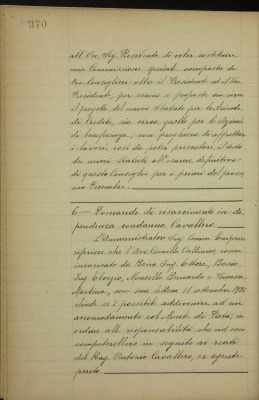 270
all'On. Sig. Presidente di voler costituire
una Commissione speciale composta da
tre Consiglieri oltre il Presidente ed il Vice
Presidente, per esame e proposte in merito
il progetto del nuovo Statuto per le Aziende
di Credito, sia circa quello per le Aziende
di beneficenza, con preghiera di affrettare
i lavori, così da poter presentare il testo
dei nuovi Statuti all'esame definitivo
di questo Consiglio per i primi del pross.
mo Dicembre.
6 - Domande di risarcimento in di-
pendenza condanna Cavallero.
L'Amministratore Sig. Comm.
riferisce che l'Avv. Camillo
incaricato da Bona Ing. Ettore,
Ing. Giorgio, Bernardo e
Martino, con sua lettera 11 settembre 1930
chiede se è possibile addivenire ad un
accomodamento col Monte di Pietà, in
ordine alle responsabilità che ad esso
competerebbero in seguito ai reati
del Rag. Antonio Cavallero, ex agente
perito.